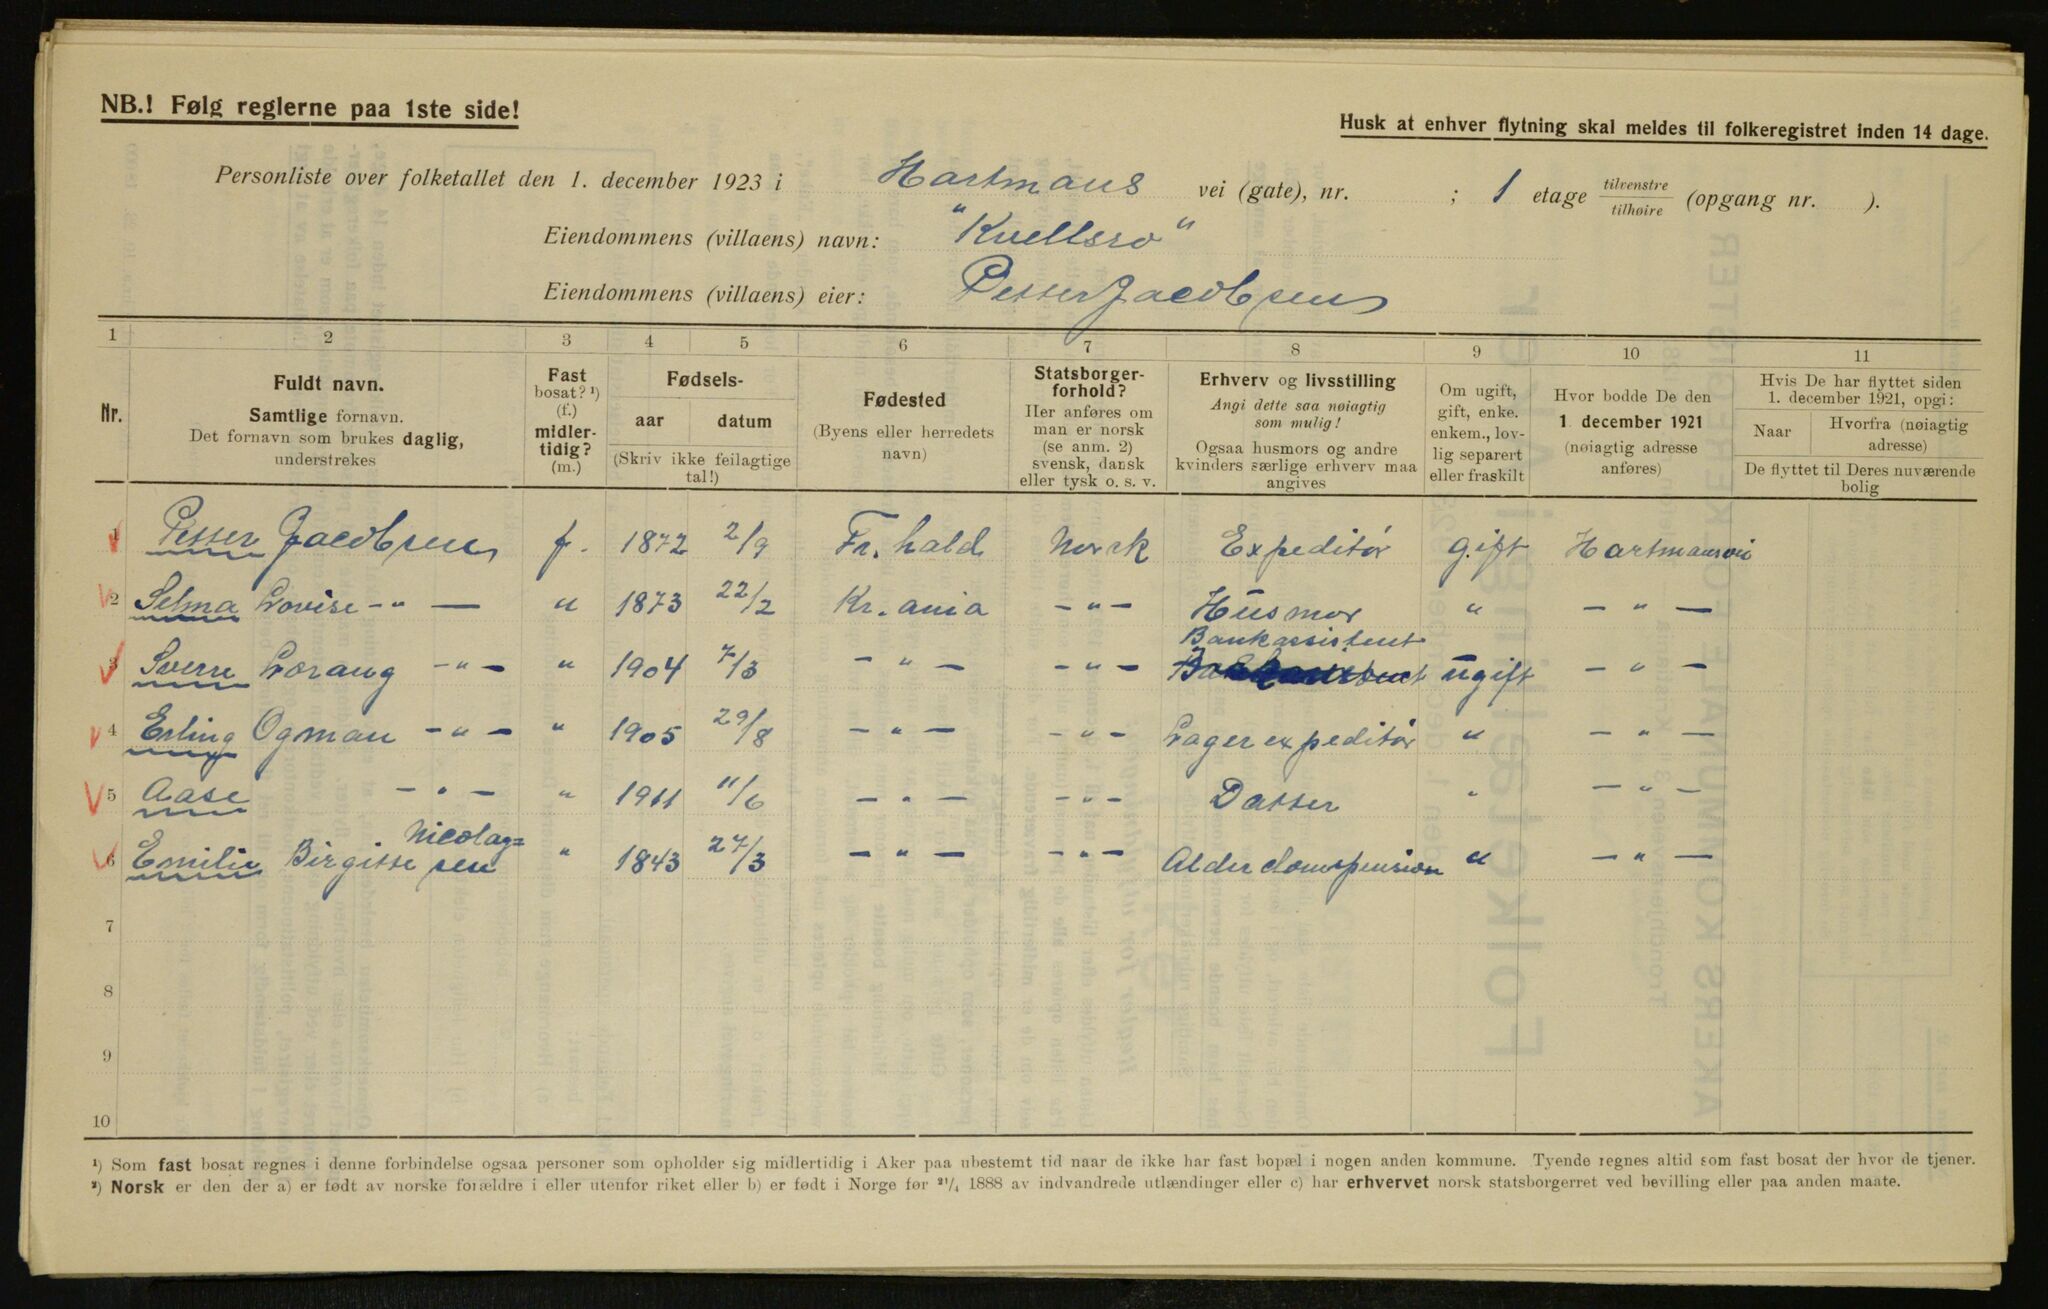 NB.! Følg reglerne paa 1ste side!
Husk at enhver flytning skal meldes til folkeregistret inden 14 dage.
Personliste over folketallet den 1. december 1923 i Hartmans vei (gate), nr. ; 1 etage tilvenstre/tilhøire (opgang nr. ).
Eiendommens (villaens) navn: "Kvellsro"
Eiendommens (villaens) eier: Petter Jacobsen
1 2 3 4 5 6 7 8 9 10 11
Nr.
Fuldt navn.
Samtlige fornavn.
Det fornavn som brukes daglig,
understrekes
Fast
bosat? ¹)
(f.)
midler-
tidig?
(m.)
Fødsels-
aar datum
(Skriv ikke feilagtige
tal!)
Fødested
(Byens eller herredets
navn)
Statsborger-
forhold?
Her anføres om
man er norsk
(se anm. 2)
svensk, dansk
eller tysk o. s. v.
Erhverv og livsstilling
Angi dette saa nøiagtig
som mulig!
Ogsaa husmors og andre
kvinders særlige erhverv maa
angives
Om ugift,
gift, enke.
enkem., lov-
lig separert
eller fraskilt
Hvor bodde De den
1 december 1921
(nøiagtig adresse
anføres)
Hvis De har flyttet siden
1. december 1921, opgi:
Naar Hvorfra (nøiagtig
adresse)
De flyttet til Deres nuværende
bolig
1 Petter Jacobsen f. 1872 2/9 Fr.hald Norsk Expeditør gift Hartmansvei
2 Selma Lovise -"- — " 1873 22/2 Kr.ania -"- Husmor " — " —
Bankassistent
3 Sverre Lorang -"- " 1904 7/3 - " - -"- ugift — " —
4 Erling Ogman -"- " 1905 29/8 - " - -"- Lagerexpeditør " — " —
5 Aase - " - " 1911 11/6 - " - -"- Datter " — " —
Nicolay=
6 Emilie Birgitte sen " 1843 27/3 - " - -"- Alderdomspension " — " —
7
8
9
10
¹) Som fast bosat regnes i denne forbindelse ogsaa personer som opholder sig midlertidig i Aker paa ubestemt tid naar de ikke har fast bopæl i nogen anden kommune. Tyende regnes altid som fast bosat der hvor de tjener.
²) Norsk er den der a) er født av norske forældre i eller utenfor riket eller b) er født i Norge før 21/4 1888 av indvandrede utlændinger eller c) har erhvervet norsk statsborgerret ved bevilling eller paa anden maate.